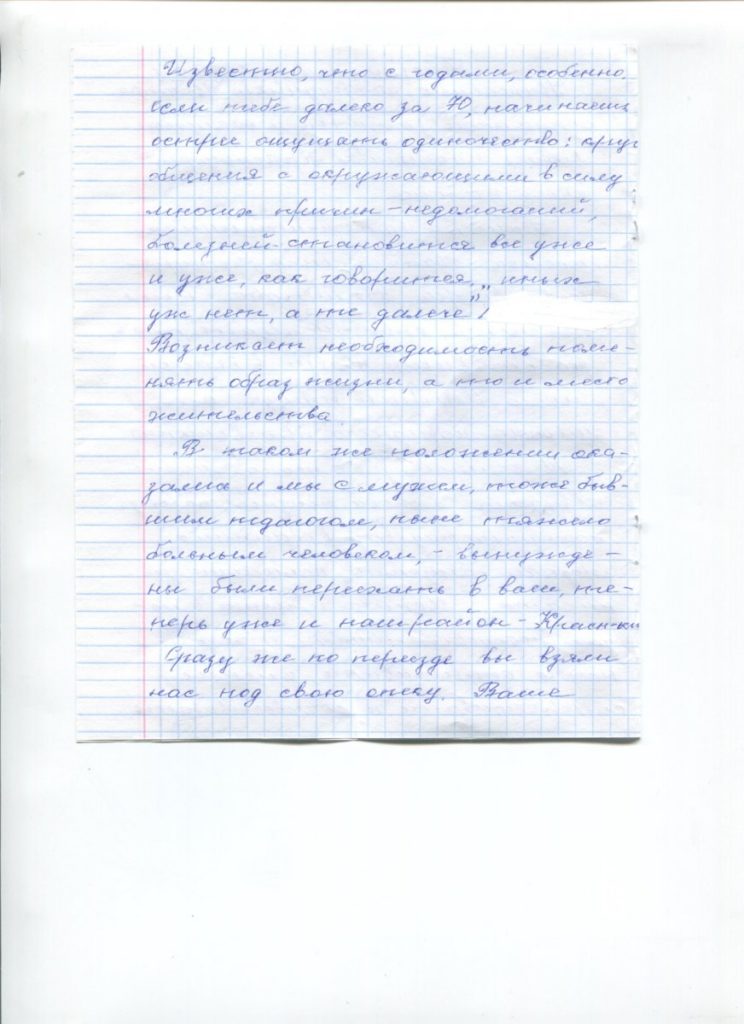 Известно, что с годами, особенно
если тебе далеко за 70, начинаешь
острее ощущать одиночество: круг
общения с окружающими в силу
многих причин – недомоганий,
болезней – становится все уже
и уже, как говорится, „иных
уж нет, а те далече”!
Возникает необходимость поме-
нять образ жизни, а то и место
жительства.
В таком же положении ока-
зались и мы с мужем, тоже быв-
шим педагогом, ныне тяжело
больным человеком, – вынужде-
ны были переехать в ваш, те-
перь уже и наш район –
Сразу же по переезде вы взяли
нас под свою опеку. Ваше